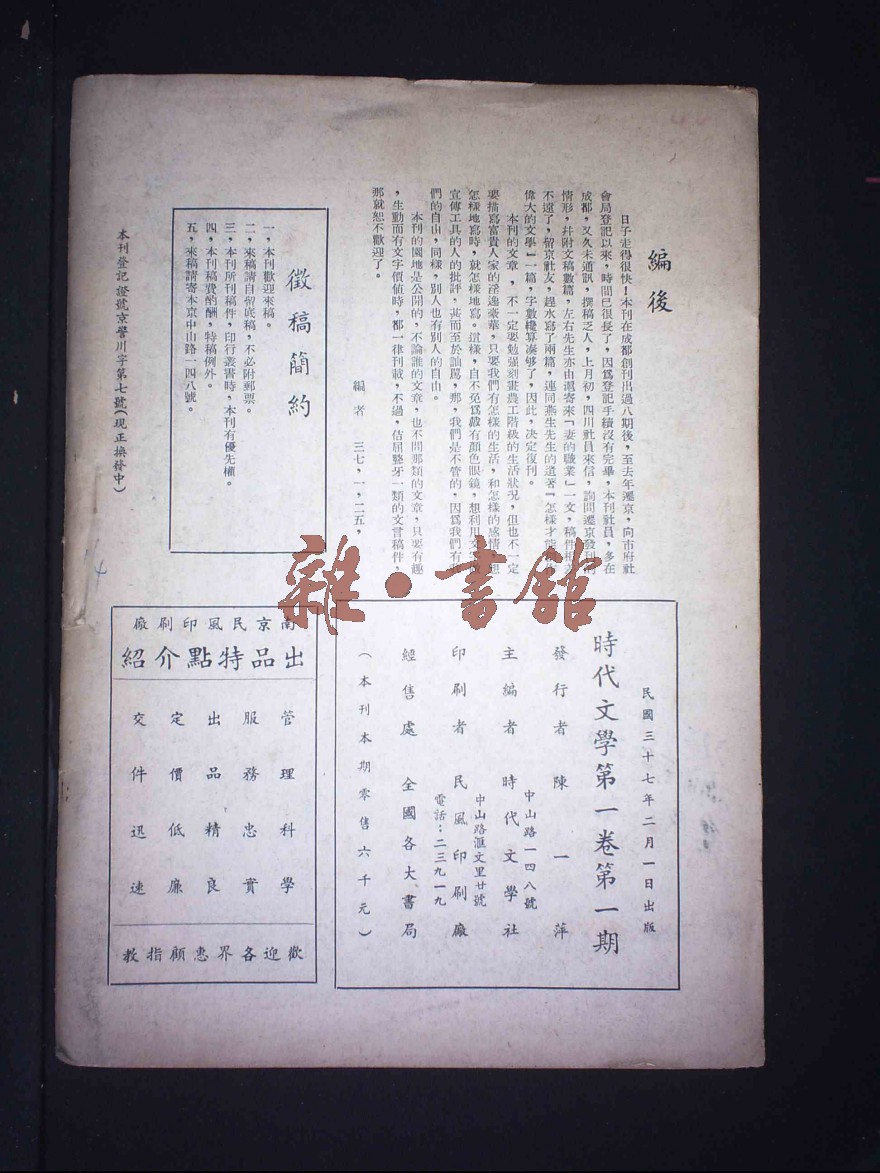 編後
日子走得很快！本刊在成都創刊出過八期後，至去年遷京，向市府社
會局登記以來，時間已很長了，因爲登記手續沒有完畢，本刊社員，多在
成都，又久未通訊，撰稿乏人，上月初，四川社員來信，詢問遷京發刊
情形，幷附文稿數篇，左右先生亦由滬寄來「妻的職業」一文，稿件
不遠了，留京社友，趕水寫了兩篇，連同燕生先生的遺著「怎樣才能
偉大的文學」一篇，字數櫳算湊够了，因此，決定復刊。
本刊的文章，不一定要勉强刻畫農工階級的生活狀況，但也不一定
要描寫富貴人家的淫逸豪華，只要我們有怎樣的生活，和怎樣的感情，想
怎樣地寫時，就怎樣地寫。這樣，自不免爲戴有顏色眼鏡，想利用文
宣傳工具的人的批評，甚而至於訕罵，那，我們是不管的，因爲我們有我
們的自由，同樣，別人也有別人的自由。
本刊的園地是公開的，不論誰的文章，也不問那類的文章，只要有趣
，生動而有文字價値時，都一律刊載，不過，佶屈聱牙一類的文言稿件，
那就恕不歡迎了。
編者 三七，一，二五，
徵稿簡約
一，本刊歡迎來稿。
二，來稿請自留底稿，不必附郵票。
三，本刊所刊稿件，印行叢書時，本刊有優先權。
四，本刊稿費酌酬，特稿例外。
五，來稿請寄本京中山路一四八號。
本刊登記證號京警川字第七號（現正換發中）
雜·書館
民國三十七年二月一日出版
時代文學第一卷第一期
發行者 陳一萍
中山路一四八號
主編者 時代文學社
中山路滙文里廿號
印刷者 民風印刷廠
電話：二三九一九
經售處 全國各大書局
（本刊本期零售六千元）
南京民風印刷廠
出品特點介紹
管理科學
服務忠實
出品精良
定價低廉
交件迅速
歡迎各界惠顧指教